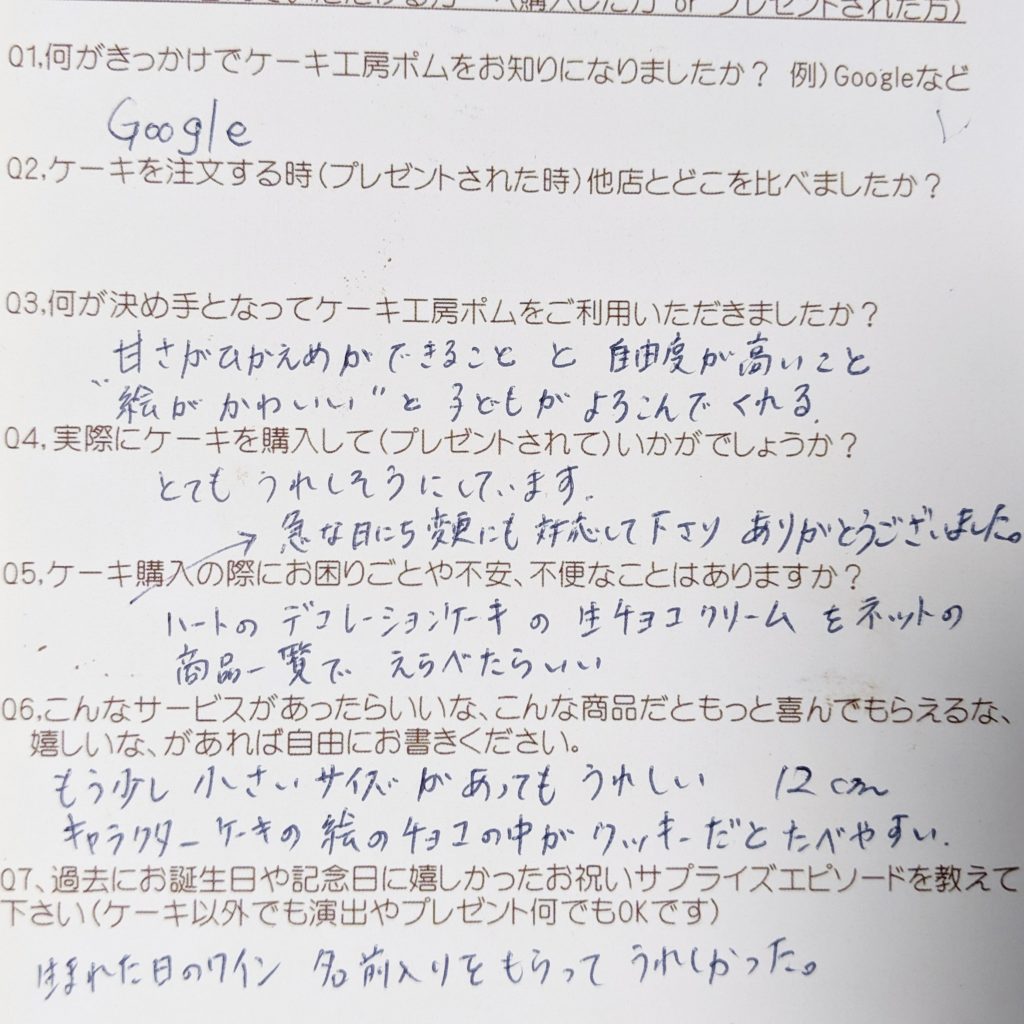 (購入した方 or プレゼントされた方)
Q1,何がきっかけでケーキ工房ポムをお知りになりましたか? 例)Googleなど
Google
Q2,ケーキを注文する時(プレゼントされた時)他店とどこを比べましたか?
Q3,何が決め手となってケーキ工房ポムをご利用いただきましたか?
甘さがひかえめができること と 自由度が高いこと
"絵が かわいい" と 子どもが よろこんで くれる.
Q4,実際にケーキを購入して(プレゼントされて)いかがでしょうか?
とても うれしそうにしています.
→ 急な日にち変更にも 対応して下さり ありがとうございました。
Q5,ケーキ購入の際にお困りごとや不安、不便なことはありますか?
ハートの デコレーションケーキ の 生チョコクリーム を ネットの
商品一覧で えらべたらいい
Q6,こんなサービスがあったらいいな、こんな商品だともっと喜んでもらえるな、
嬉しいな、があれば自由にお書きください。
もう少し 小さい サイズ があっても うれしい 12cm
キャラクターケーキの 絵の チョコの中が クッキーだと たべやすい.
Q7、過去にお誕生日や記念日に嬉しかったお祝いサプライズエピソードを教えて
下さい(ケーキ以外でも演出やプレゼント何でもOKです)
生まれた日のワイン 名前入りをもらって うれしかった。